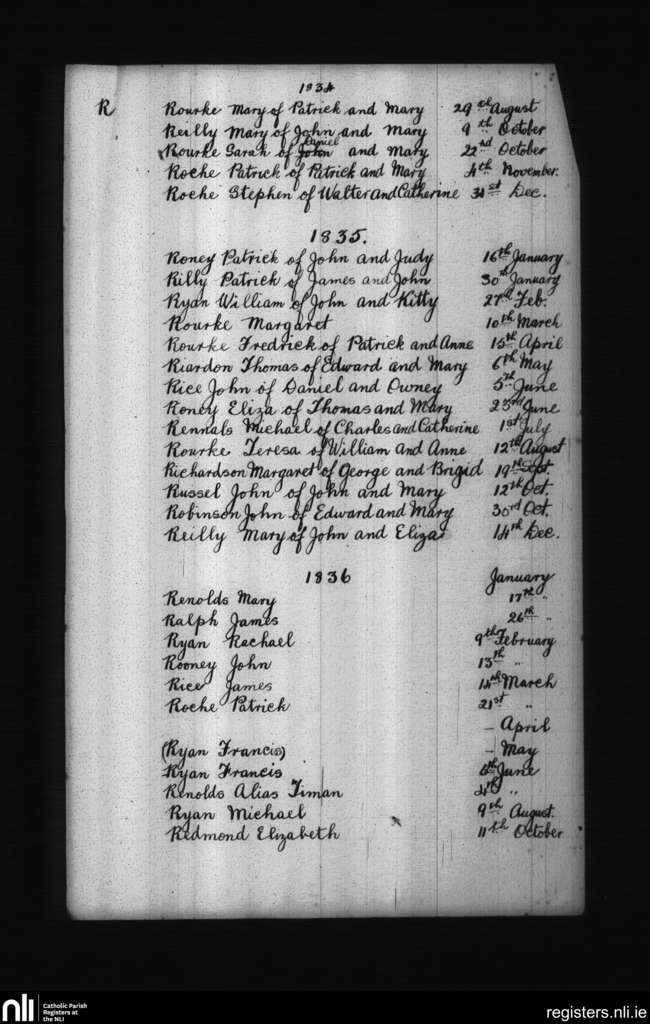 1834
R Rourke Mary of Patrick and Mary 29th August
Reilly Mary of John and Mary 9th October
Rourke Sarah of John Daniel and Mary 22nd October
Roche Patrick of Patrick and Mary 4th November.
Roche Stephen of Walter and Catherine 31st Dec.
1835.
Roney Patrick of John and Judy 16th January
Rilly Patrick of James and John 30th January
Ryan William of John and Kitty 27th Feb.
Rourke Margaret 10th March
Rourke Fredrick of Patrick and Anne 15th April
Riardon Thomas of Edward and Mary 6th May
Rice John of Daniel and Owney 5th June
Roney Eliza of Thomas and Mary 23rd June
Rennals Michael of Charles and Catherine 1st July
Rourke Teresa of William and Anne 12th August
Richardson Margaret of George and Brigid 19th Sept.
Russel John of John and Mary 12th Oct.
Robinson John of Edward and Mary 30rd Oct.
Reilly Mary of John and Eliza 14th Dec.
1836 January
Renolds Mary 17th "
Ralph James 26th "
Ryan Rachael 9th February
Rooney John 13th "
Rice James 14th March
Roche Patrick 21st "
– April
(Ryan Francis) – May
Ryan Francis 4th June
Renolds Alias Timan "
Ryan Michael 9th August.
Redmond Elizabeth 11th October
nli Catholic Parish
Registers at
the NLI
registers.nli.ie